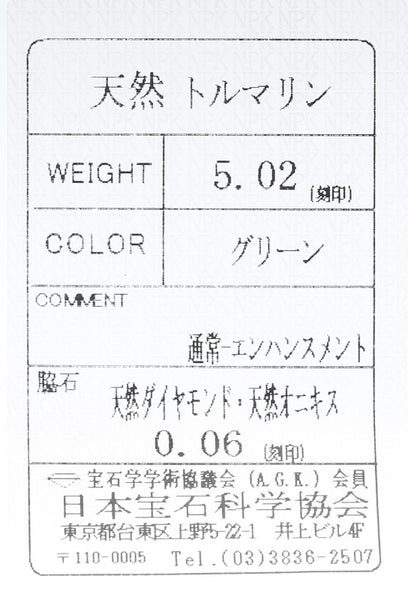 天然 トルマリン
WEIGHT 5.02 (刻印)
COLOR グリーン
COMMENT
通常-エンハンスメント
脇石
天然ダイヤモンド・天然オニキス
0.06 (刻印)
宝石学学術協議会 (A.G.K.) 会員
日本宝石科学協会
東京都台東区上野5-22-1 井上ビル4F
〒110-0005 Tel.(03)3836-2507